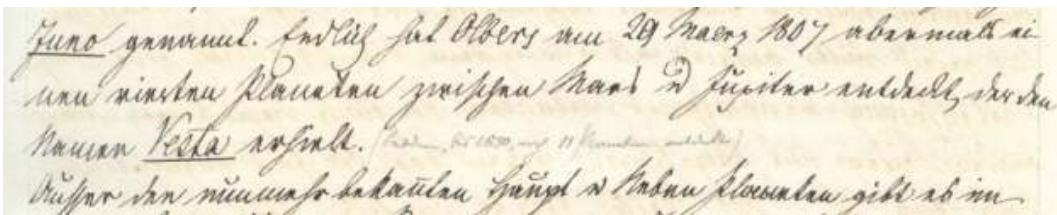 Juno genannt. Endlich hat Olbers am 29 Maerz 1807 abermals ei
nen vierten Planeten zwischen Mars u Jupiter entdeckt, der den
Namen Vesta erhielt. (Seitdem, bis 1850, noch 11 Planeten entdeckt)
Ausser den nunmehr bekannten Haupt u Neben Planeten gibt es im